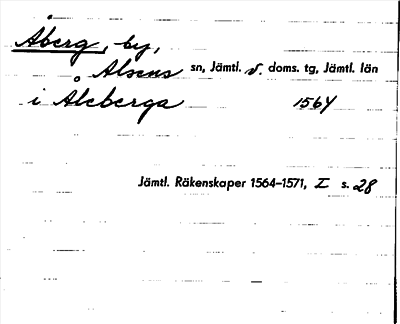 Åberg, by,
Alsens sn, Jämtl. v. doms. tg, Jämtl. län
i Åleberga 1564
Jämtl. Räkenskaper 1564–1571, I s. 28